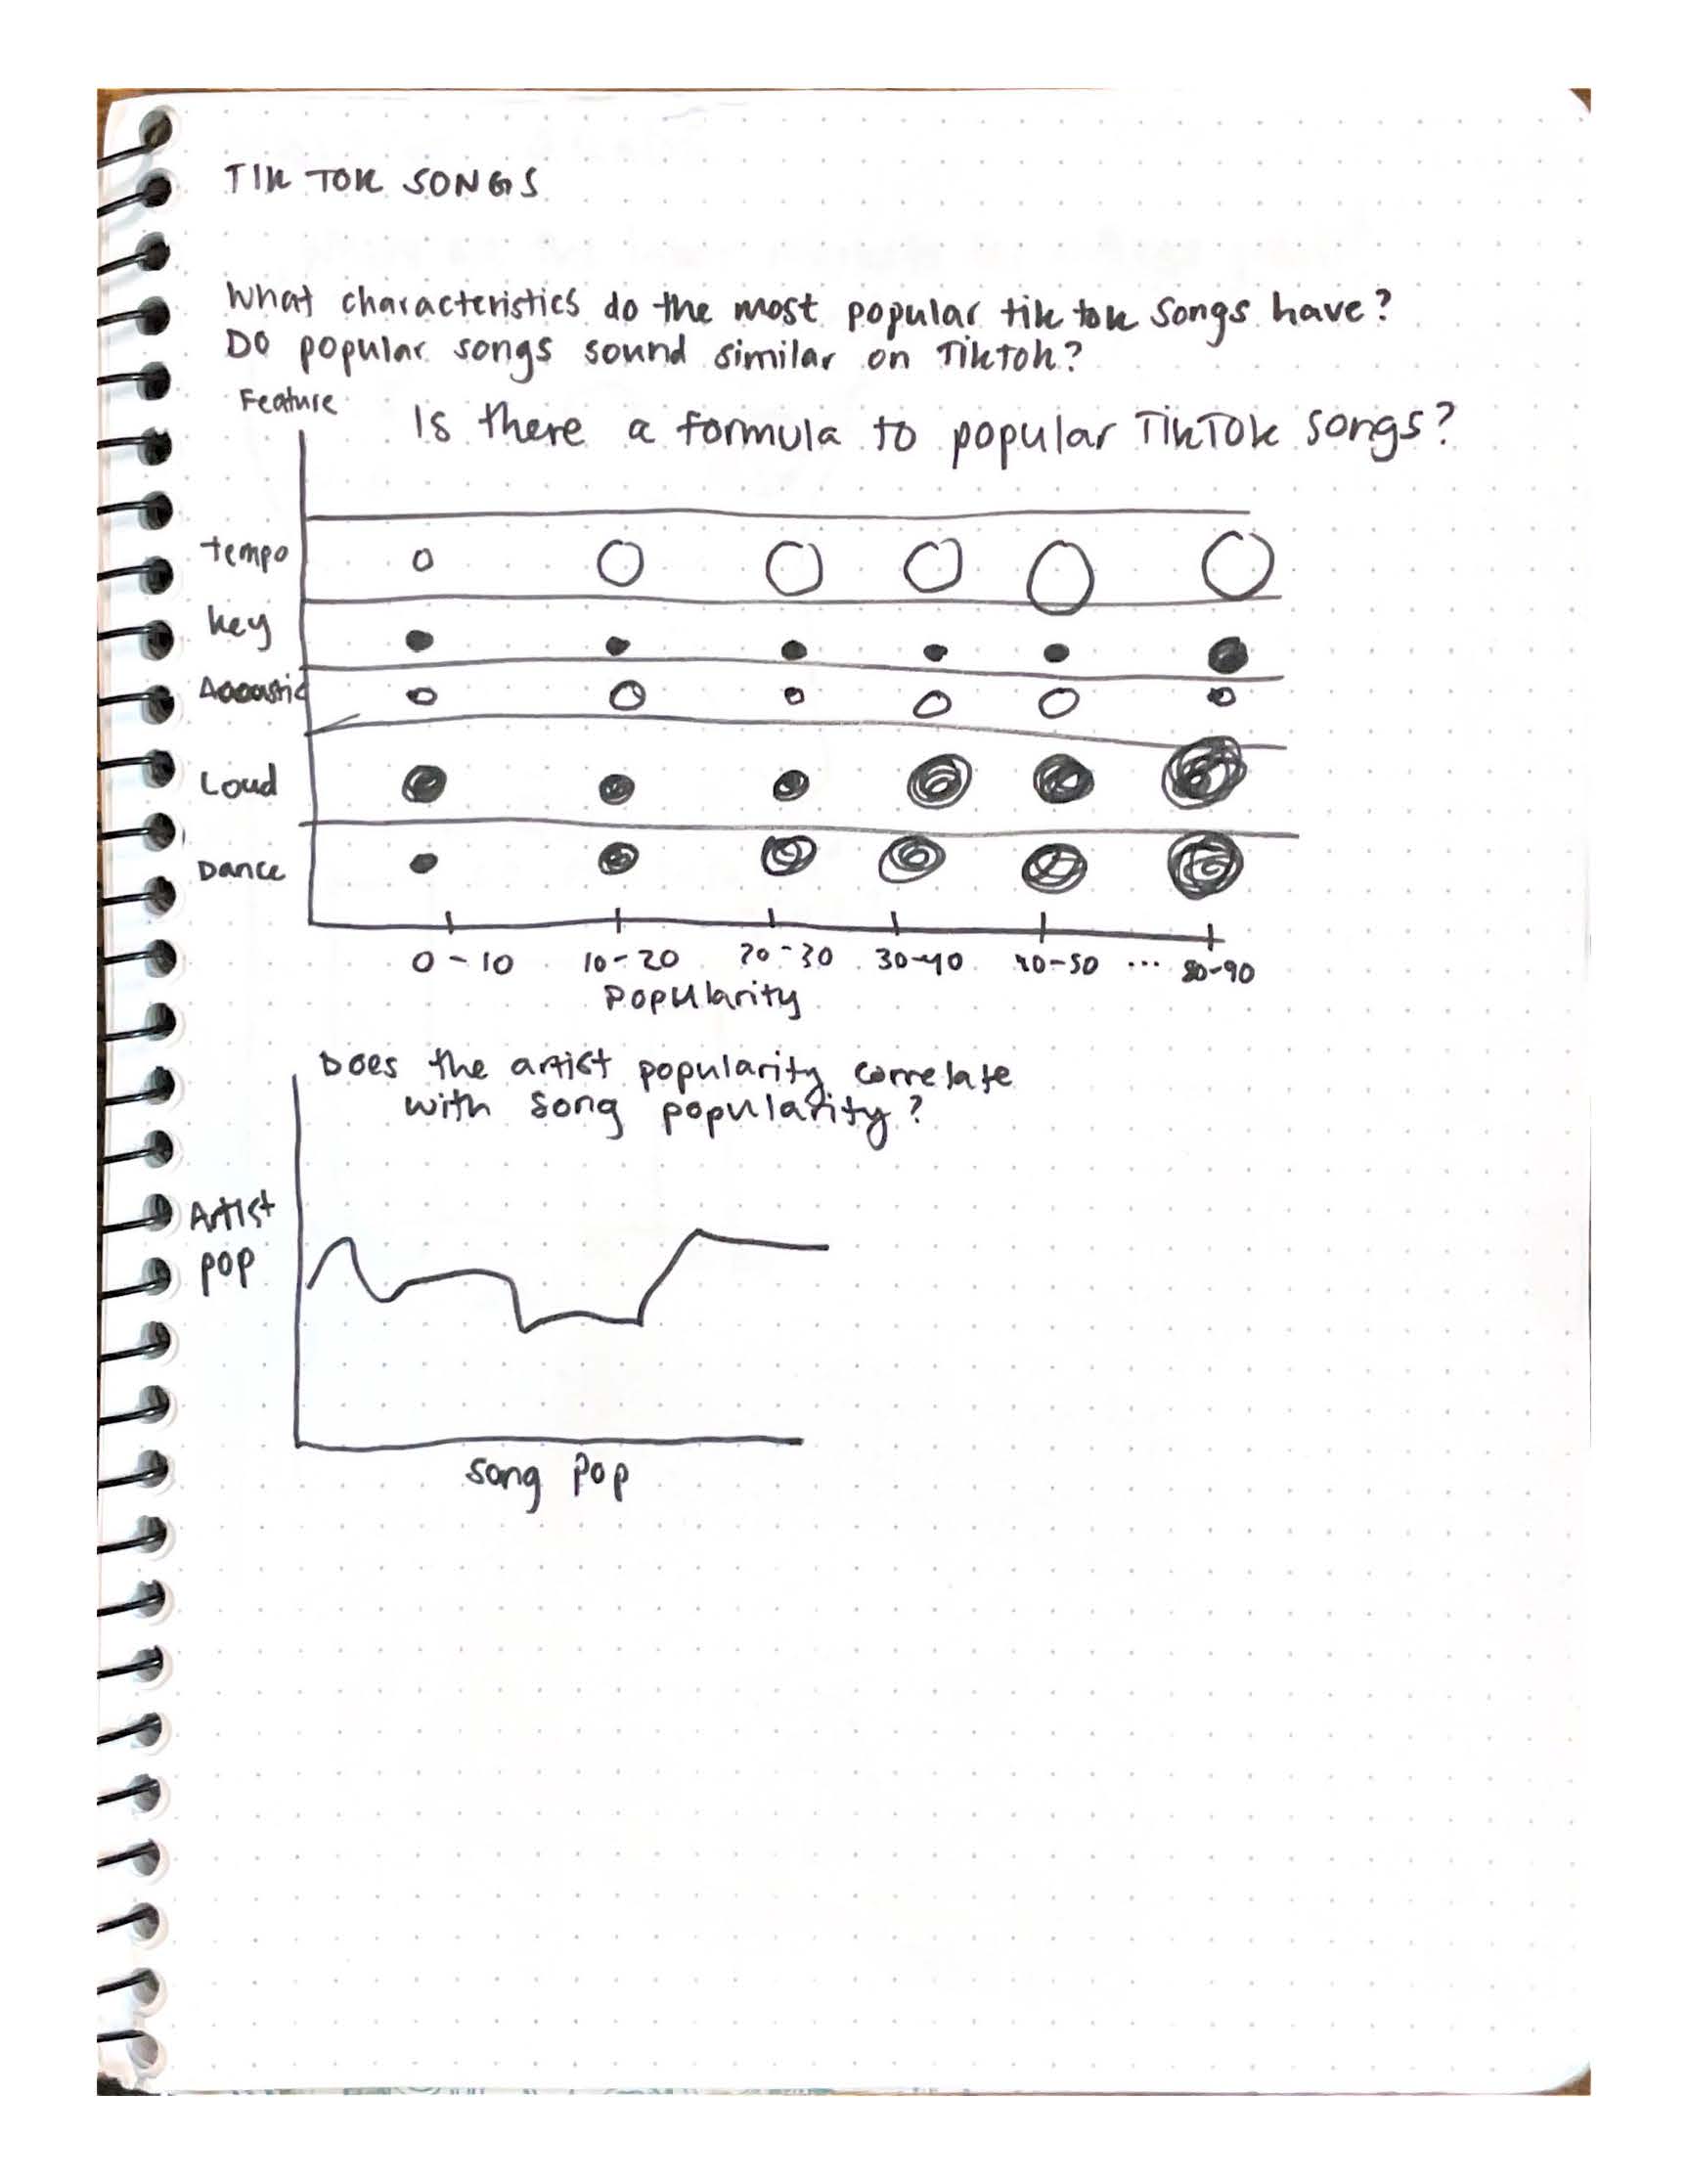 TIK TOK SONGS
What characteristics do the most popular tik tok songs have?
Do popular songs sound similar on Tiktok?
Feature
Is there a formula to popular TikTok songs?
tempo
key
Acoustic
Loud
Dance
0-10 10-20 20-30 30-40 40-50 ... 80-90
Popularity
Does the artist popularity correlate
with song popularity?
Artist
pop
Song Pop